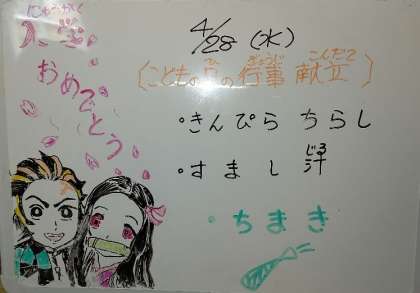 にゅうがく
入学
おめでとう
4/28 (水)
(こどもの日の行事 献立)
ひ ぎょうじ こんだて
・きんぴら ちらし
・すまし 汁
じる
・ちまき